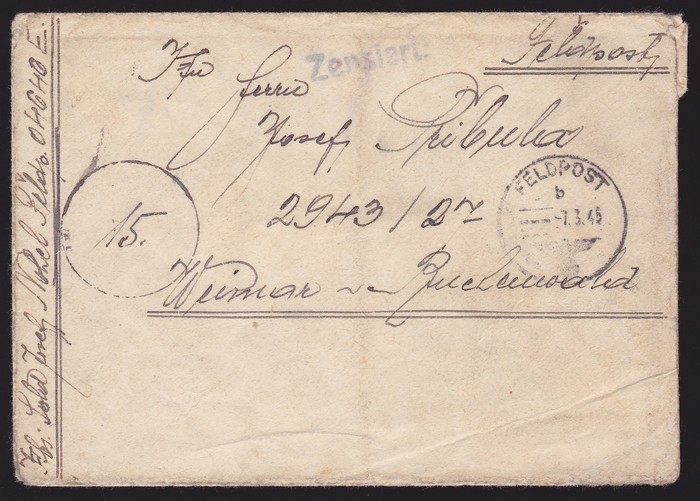 Zensiert.
Feldpost
Herrn
Josef Pribula
2943/27
Weimar - Buchenwald
15.
FELDPOST
b
-7.3.45
Josef Feldp. 04640 E.